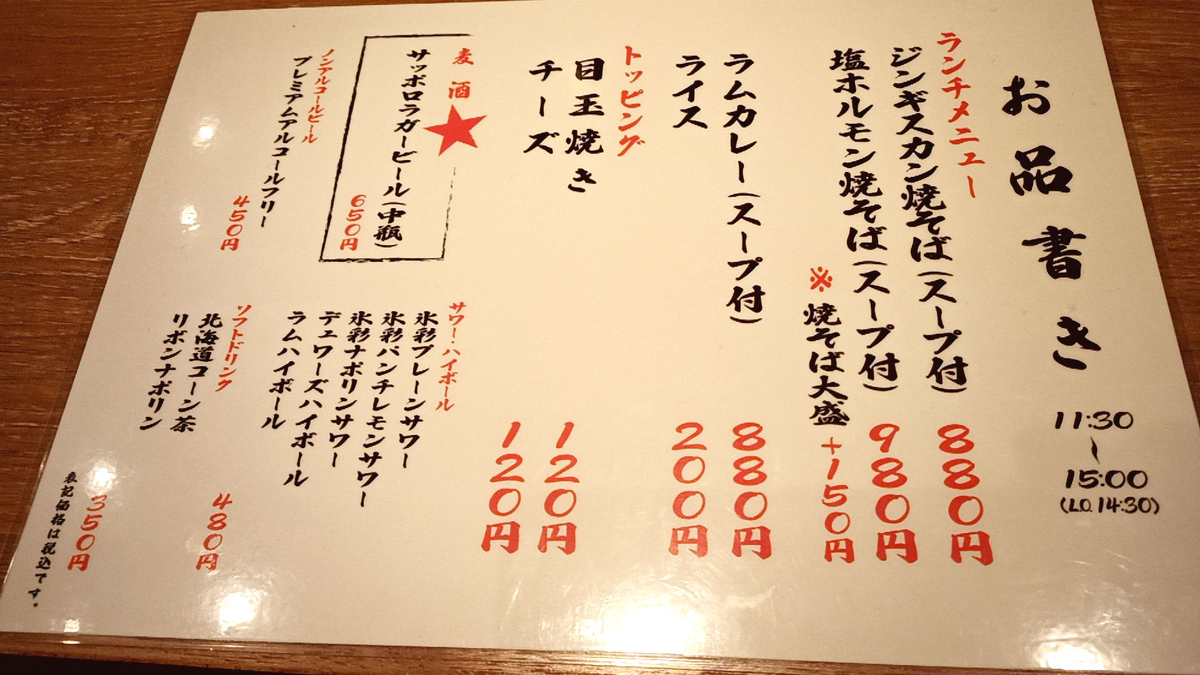 お品書き
11:30
～
15:00
(L.O. 14:30)
ランチメニュー
ジンギスカン焼そば(スープ付) 880円
塩ホルモン焼そば(スープ付) 980円
※焼そば大盛 +150円
ラムカレー(スープ付) 880円
ライス 200円
トッピング
目玉焼き 120円
チーズ 120円
麦酒
サッポロラガービール(中瓶)
650円
ノンアルコールビール
プレミアムアルコールフリー
450円
サワー・ハイボール
氷彩プレーンサワー
氷彩パンチレモンサワー
氷彩ナポリンサワー
デュワーズハイボール
ラムハイボール
480円
ソフトドリンク
北海道コーン茶
リボンナポリン
350円
表記価格は税込です。